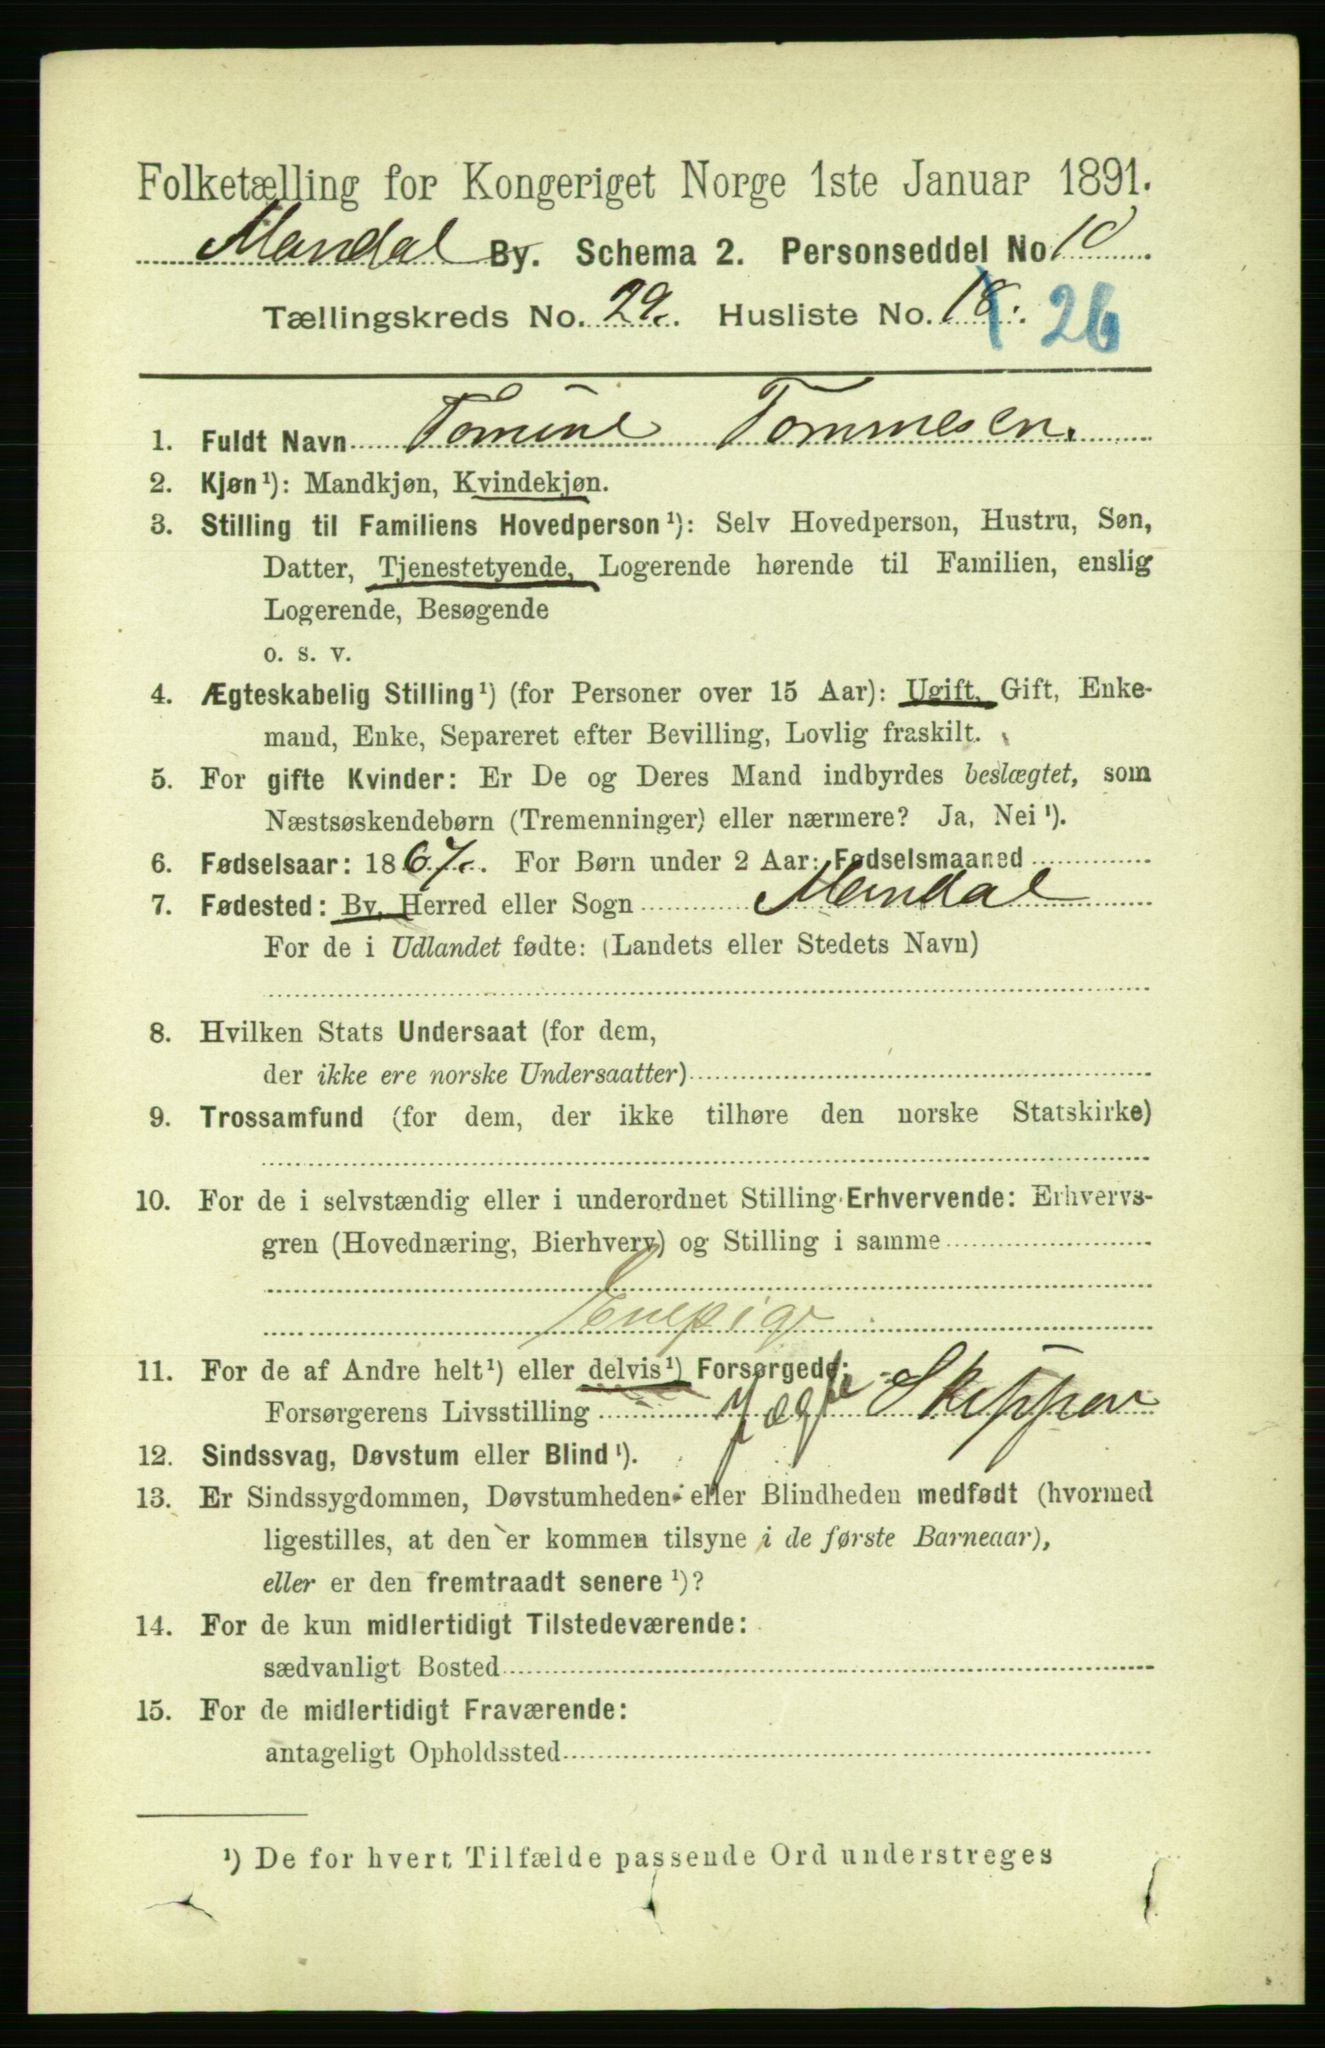 Folketælling for Kongeriget Norge 1ste Januar 1891.
Mandal By. Schema 2. Personseddel No 10
Tællingskreds No. 29. Husliste No. 18. 26
1. Fuldt Navn Tomine Tommesen.
2. Kjøn ¹): Mandkjøn, Kvindekjøn.
3. Stilling til Familiens Hovedperson ¹): Selv Hovedperson, Hustru, Søn,
Datter, Tjenestetyende, Logerende hørende til Familien, enslig
Logerende, Besøgende
o. s. v.
4. Ægteskabelig Stilling ¹) (for Personer over 15 Aar): Ugift, Gift, Enke-
mand, Enke, Separeret efter Bevilling, Lovlig fraskilt.
5. For gifte Kvinder: Er De og Deres Mand indbyrdes beslægtet, som
Næstsøskendebørn (Tremenninger) eller nærmere? Ja, Nei ¹).
6. Fødselsaar: 1867. For Børn under 2 Aar: Fødselsmaaned
7. Fødested: By, Herred eller Sogn Mandal
For de i Udlandet fødte: (Landets eller Stedets Navn)
8. Hvilken Stats Undersaat (for dem,
der ikke ere norske Undersaatter)
9. Trossamfund (for dem, der ikke tilhøre den norske Statskirke)
10. For de i selvstændig eller i underordnet Stilling Erhvervende: Erhvervs-
gren (Hovednæring, Bierhverv) og Stilling i samme
11. For de af Andre helt ¹) eller delvis ¹) Forsørgede:
Forsørgerens Livsstilling Jagte Skipper
12. Sindssvag, Døvstum eller Blind ¹).
13. Er Sindssygdommen, Døvstumheden eller Blindheden medfødt (hvormed
ligestilles, at den er kommen tilsyne i de første Barneaar),
eller er den fremtraadt senere ¹)?
14. For de kun midlertidigt Tilstedeværende:
sædvanligt Bosted
15. For de midlertidigt Fraværende:
antageligt Opholdssted
¹) De for hvert Tilfælde passende Ord understreges